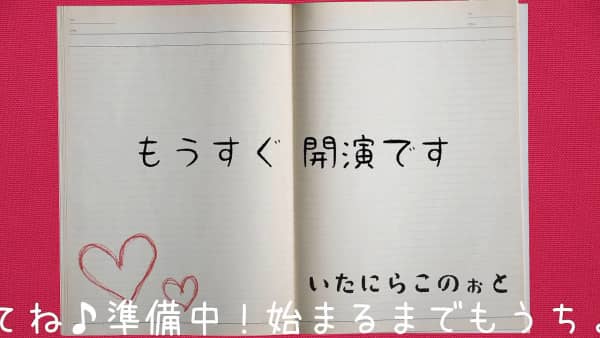 もうすぐ 開演です
いたにらこのぉと
てね♪準備中！始まるまでもうちょ